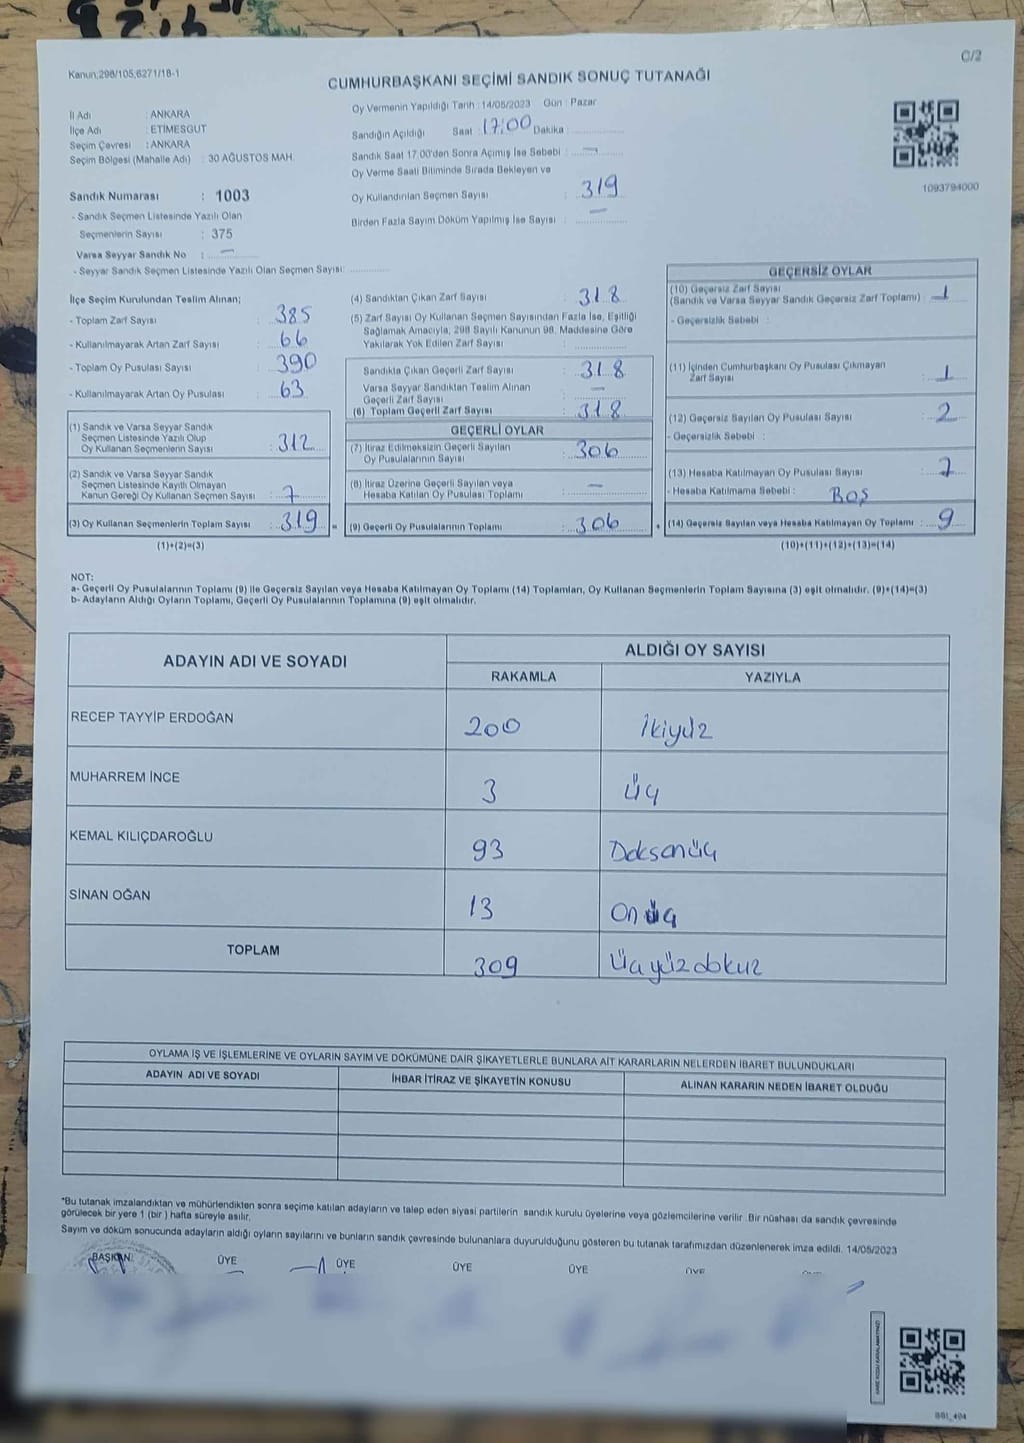 C/2
Kanun;298/105,6271/18-1
CUMHURBAŞKANI SEÇİMİ SANDIK SONUÇ TUTANAĞI
İl Adı : ANKARA
İlçe Adı : ETİMESGUT
Seçim Çevresi : ANKARA
Seçim Bölgesi (Mahalle Adı) : 30 AĞUSTOS MAH.
Sandık Numarası : 1003
- Sandık Seçmen Listesinde Yazılı Olan
Seçmenlerin Sayısı : 375
Varsa Seyyar Sandık No : —
- Seyyar Sandık Seçmen Listesinde Yazılı Olan Seçmen Sayısı: ............
Oy Vermenin Yapıldığı Tarih : 14/05/2023 Gün : Pazar
Sandığın Açıldığı Saat : 17:00 Dakika : ............
Sandık Saat 17:00'den Sonra Açımış İse Sebebi : —
Oy Verme Saati Bitiminde Sırada Bekleyen ve
Oy Kullandırılan Seçmen Sayısı : 319
Birden Fazla Sayım Döküm Yapılmış İse Sayısı : —
1093794000
İlçe Seçim Kurulundan Teslim Alınan;
- Toplam Zarf Sayısı : 385
- Kullanılmayarak Artan Zarf Sayısı : 66
- Toplam Oy Pusulası Sayısı : 390
- Kullanılmayarak Artan Oy Pusulası : 63
(1) Sandık ve Varsa Seyyar Sandık
Seçmen Listesinde Yazılı Olup
Oy Kullanan Seçmenlerin Sayısı : 312
(2) Sandık ve Varsa Seyyar Sandık
Seçmen Listesinde Kayıtlı Olmayan
Kanun Gereği Oy Kullanan Seçmen Sayısı : 7
(3) Oy Kullanan Seçmenlerin Toplam Sayısı : 319 =
(1)+(2)=(3)
(4) Sandıktan Çıkan Zarf Sayısı : 318
(5) Zarf Sayısı Oy Kullanan Seçmen Sayısından Fazla İse, Eşitliği
Sağlamak Amacıyla, 298 Sayılı Kanunun 98. Maddesine Göre
Yakılarak Yok Edilen Zarf Sayısı : ............
Sandıkta Çıkan Geçerli Zarf Sayısı : 318
Varsa Seyyar Sandıktan Teslim Alınan
Geçerli Zarf Sayısı : —
(6) Toplam Geçerli Zarf Sayısı : 318
GEÇERLİ OYLAR
(7) İtiraz Edilmeksizin Geçerli Sayılan
Oy Pusulalarının Sayısı : 306
(8) İtiraz Üzerine Geçerli Sayılan veya
Hesaba Katılan Oy Pusulası Toplamı : —
(9) Geçerli Oy Pusulalarının Toplamı : 306 +
GEÇERSİZ OYLAR
(10) Geçersiz Zarf Sayısı
(Sandık ve Varsa Seyyar Sandık Geçersiz Zarf Toplamı) : 1
- Geçersizlik Sebebi :
(11) İçinden Cumhurbaşkanı Oy Pusulası Çıkmayan
Zarf Sayısı : 1
(12) Geçersiz Sayılan Oy Pusulası Sayısı : 2
- Geçersizlik Sebebi :
(13) Hesaba Katılmayan Oy Pusulası Sayısı :
- Hesaba Katılmama Sebebi : BOŞ
(14) Geçersiz Sayılan veya Hesaba Katılmayan Oy Toplamı : 9
(10)+(11)+(12)+(13)=(14)
NOT:
a- Geçerli Oy Pusulalarının Toplamı (9) ile Geçersiz Sayılan veya Hesaba Katılmayan Oy Toplamı (14) Toplamları, Oy Kullanan Seçmenlerin Toplam Sayısına (3) eşit olmalıdır. (9)+(14)=(3)
b- Adayların Aldığı Oyların Toplamı, Geçerli Oy Pusulalarının Toplamına (9) eşit olmalıdır.
ADAYIN ADI VE SOYADI
ALDIĞI OY SAYISI
RAKAMLA YAZIYLA
RECEP TAYYİP ERDOĞAN 200 İkiyüz
MUHARREM İNCE 3 Üç
KEMAL KILIÇDAROĞLU 93 Doksanüç
SİNAN OĞAN 13 Onüç
TOPLAM 309 Üçyüzdokuz
OYLAMA İŞ VE İŞLEMLERİNE VE OYLARIN SAYIM VE DÖKÜMÜNE DAİR ŞİKAYETLERLE BUNLARA AİT KARARLARIN NELERDEN İBARET BULUNDUKLARI
ADAYIN ADI VE SOYADI İHBAR İTİRAZ VE ŞİKAYETİN KONUSU ALINAN KARARIN NEDEN İBARET OLDUĞU
*Bu tutanak imzalandıktan ve mühürlendikten sonra seçime katılan adayların ve talep eden siyasi partilerin sandık kurulu üyelerine veya gözlemcilerine verilir. Bir nüshası da sandık çevresinde
görülecek bir yere 1 (bir ) hafta süreyle asılır.
Sayım ve döküm sonucunda adayların aldığı oyların sayılarını ve bunların sandık çevresinde bulunanlara duyurulduğunu gösteren bu tutanak tarafımızdan düzenlenerek imza edildi. 14/05/2023
BAŞKAN ÜYE ÜYE ÜYE ÜYE ÜYE